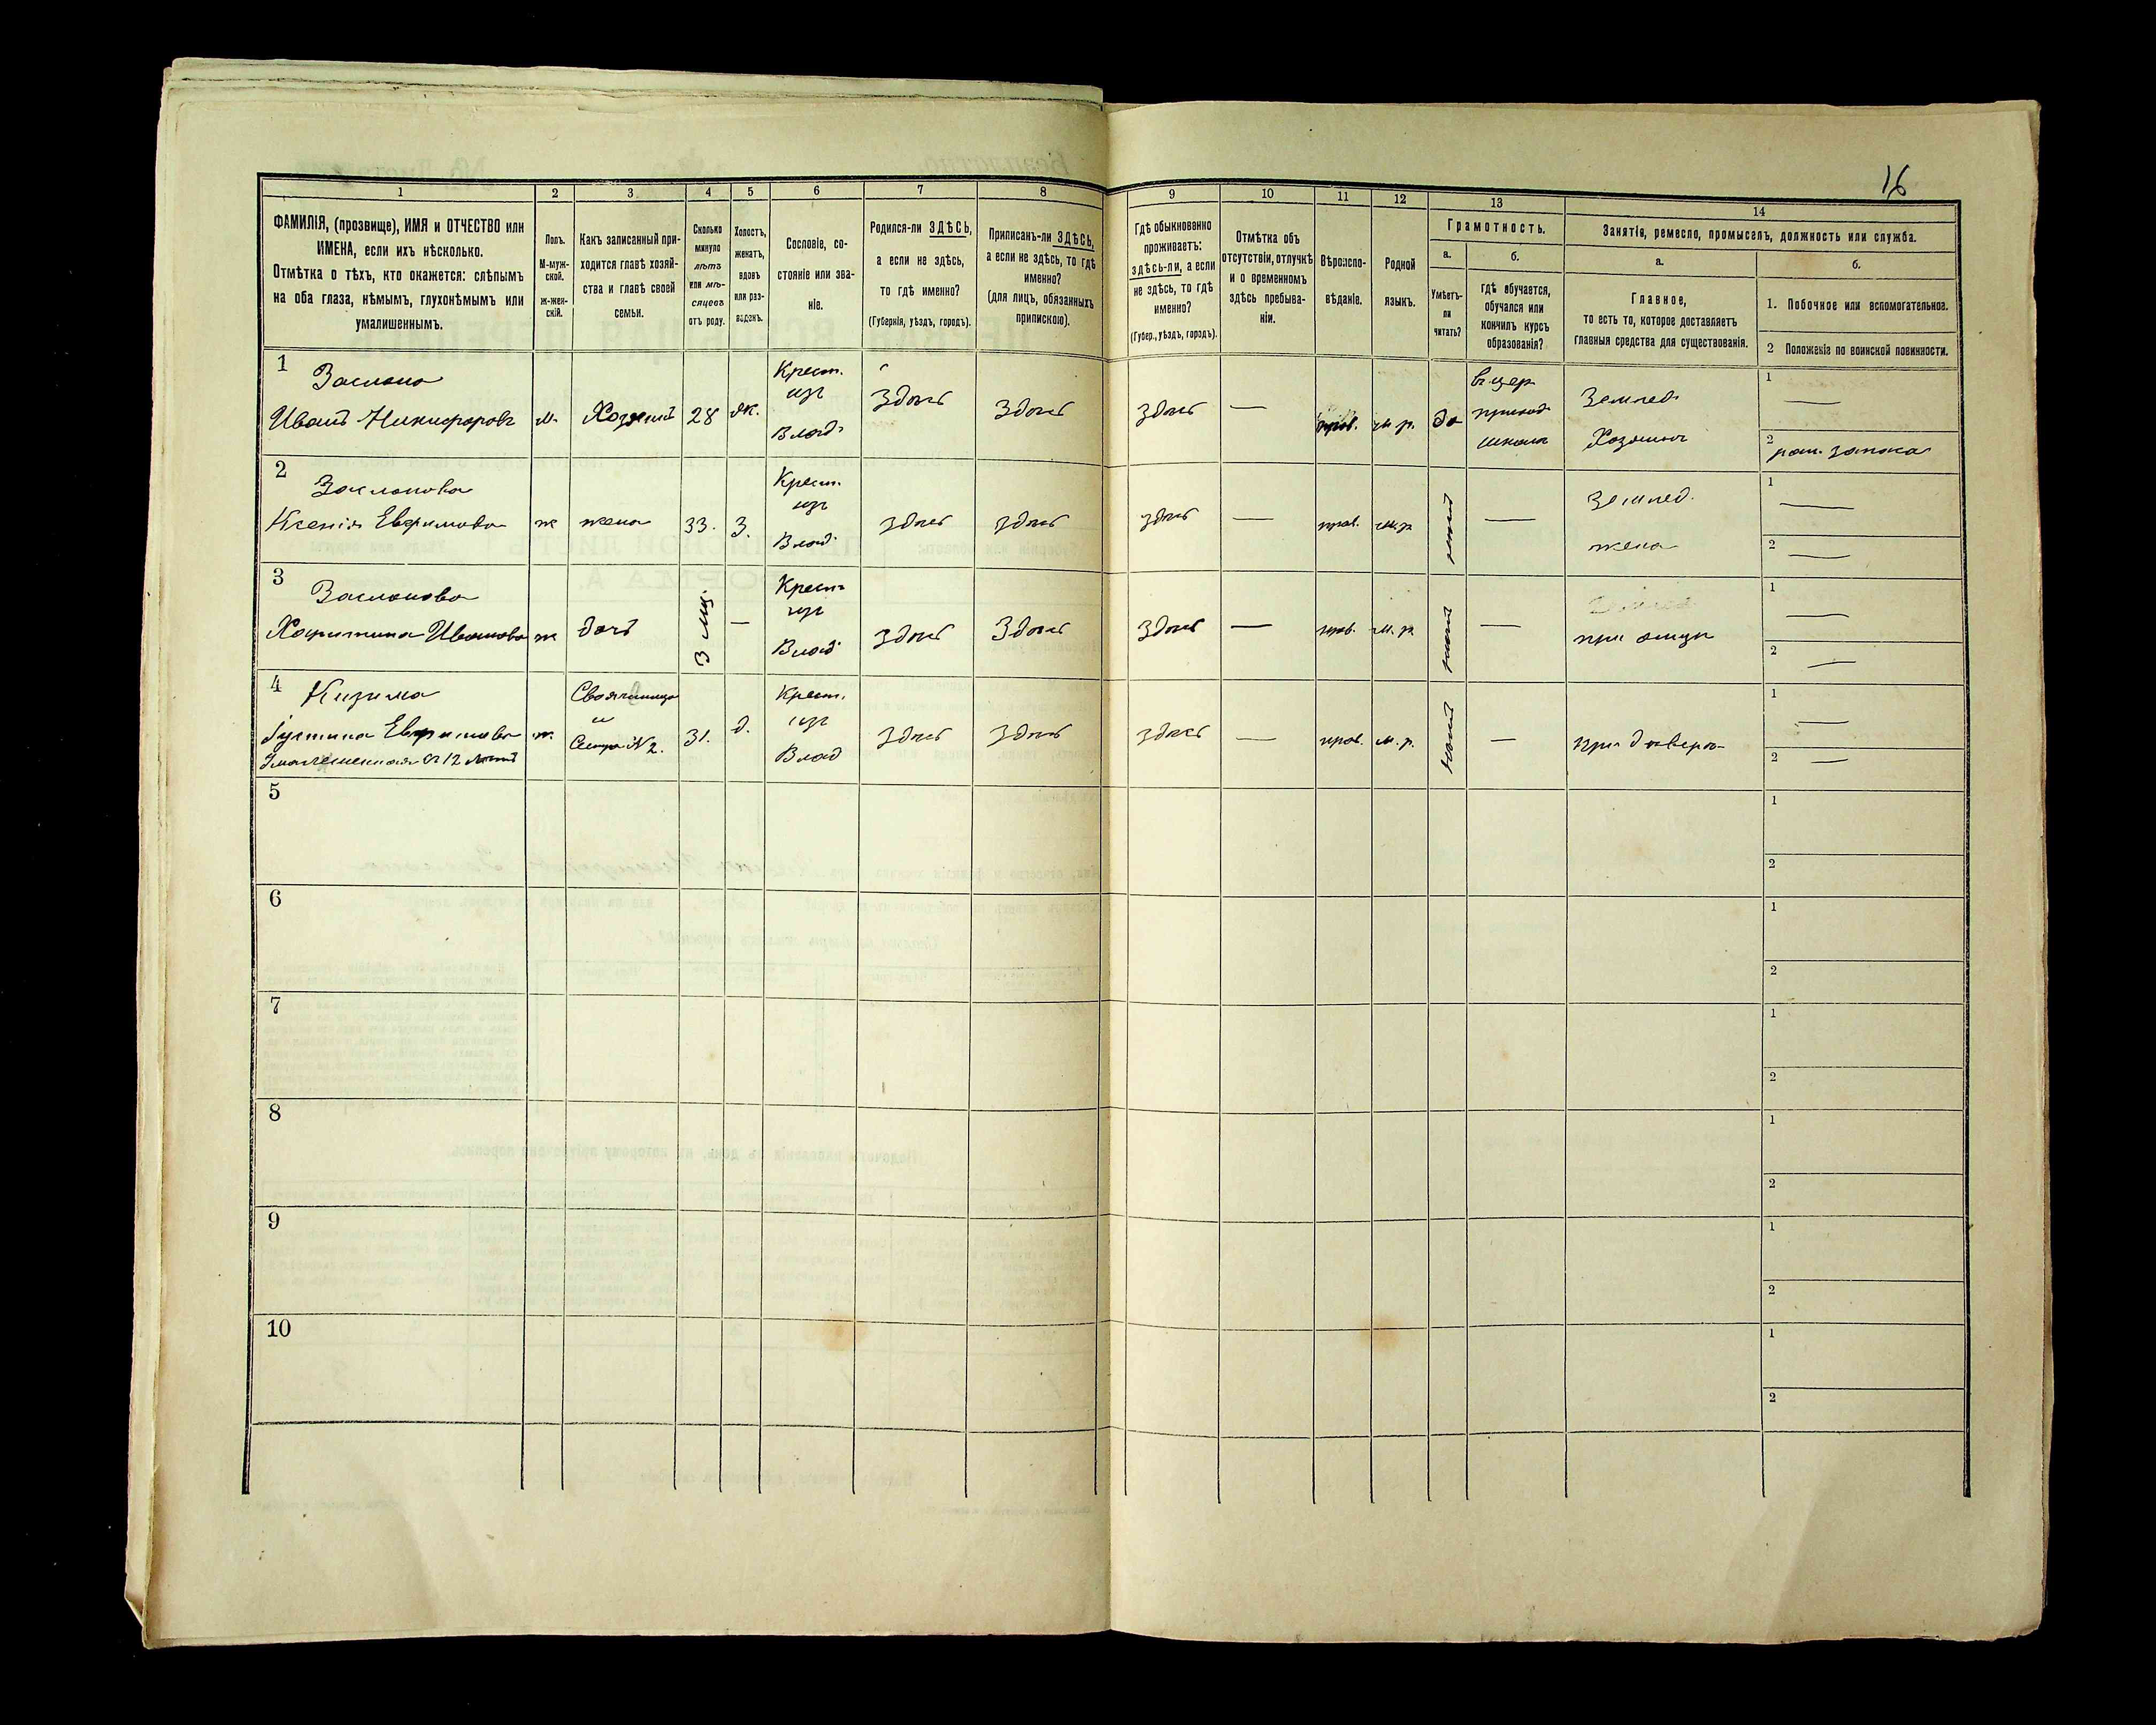 16
1
2
3
4
5
6
7
8
9
10
11
12
13
14
ФАМИЛІЯ, (прозвище), ИМЯ и ОТЧЕСТВО или
ИМЕНА, если ихъ нѣсколько.
Отмѣтка о тѣхъ, кто окажется: слѣпымъ
на оба глаза, нѣмымъ, глухонѣмымъ или
умалишеннымъ.
Полъ.
М-муж-
ской.
ж-жен-
скій.
Какъ записанный при-
ходится главѣ хозяй-
ства и главѣ своей
семьи.
Сколько
минуло
лѣтъ
или мѣ-
сяцевъ
отъ роду.
Холостъ,
женатъ,
вдовъ
или раз-
веденъ.
Сословіе, со-
стояніе или зва-
ніе.
Родился-ли ЗДѢСЬ,
а если не здѣсь,
то гдѣ именно?
(Губернія, уѣздъ, городъ).
Приписанъ-ли ЗДѢСЬ,
а если не здѣсь, то гдѣ
именно?
(для лицъ, обязанныхъ
припискою).
Гдѣ обыкновенно
проживаетъ:
здѣсь-ли, а если
не здѣсь, то гдѣ
именно?
(Губер., уѣздъ, городъ).
Отмѣтка объ
отсутствіи, отлучкѣ
и о временномъ
здѣсь пребыва-
ніи.
Вѣроиспо-
вѣданіе.
Родной
языкъ.
Грамотность.
а.
Умѣетъ-
ли
читать?
б.
гдѣ обучается,
обучался или
кончилъ курсъ
образованія?
Занятія, ремесло, промыселъ, должность или служба.
а.
Главное,
то есть то, которое доставляетъ
главныя средства для существованія.
б.
1. Побочное или вспомогательное.
2 Положеніе по воинской повинности.
1
Иванъ Никифоровъ
м.
Хозяинъ
28
ж.
Крест.
изъ
Влад.
здѣсь
здѣсь
здѣсь
—
прав.
м. р.
да
въ цер.
приход.
школѣ
Землед.
Хозяинъ
1 —
2 рат. запаса
2
Заслонова
Ксенія Ефимова
ж
жена
33.
З.
Крест.
изъ
Влад.
здѣсь
здѣсь
здѣсь
—
прав.
м. р.
нѣтъ
—
Землед.
жена
1 —
2 —
3
Заслонова
Харитина Иванова
ж
дочь
3 мѣц.
—
Крест.
изъ
Влад.
здѣсь
здѣсь
здѣсь
—
прав.
м. р.
нѣтъ
—
при отцѣ
1 —
2 —
4
Кизима
Іустина Ефимова
Умалишенная съ 12 лѣтъ
ж.
Свояченица
и
Сестра №2.
31.
д.
Крест.
изъ
Влад
здѣсь
здѣсь
здѣсь
—
прав.
м. р.
нѣтъ
—
1 —
2 —
5
1
2
6
1
2
7
1
2
8
1
2
9
1
2
10
1
2